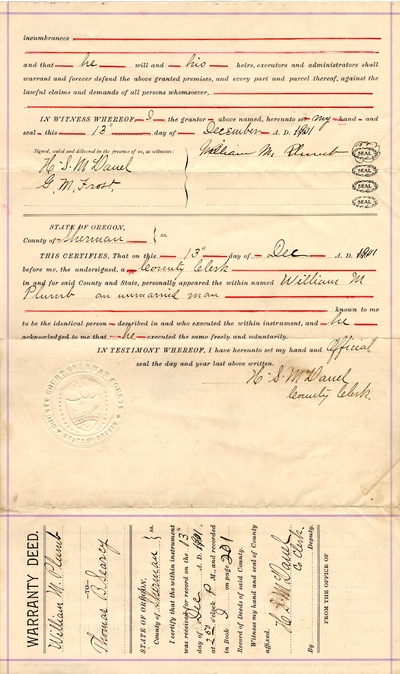 incumbrances
and that he will and his heirs, executors and administrators shall
warrant and forever defend the above granted premises, and every part and parcel thereof, against the
lawful claims and demands of all persons whomsoever.
IN WITNESS WHEREOF, I the grantor above named, hereunto set my hand and
seal this 13" day of December A. D. 1901
Signed, sealed and delivered in the presence of us, as witnesses:
William M. Plumb SEAL
H. S. McDanel SEAL
G. M. Frost, SEAL
SEAL
STATE OF OREGON,
County of Sherman ss.
THIS CERTIFIES, That on this 13" day of Dec A. D. 1901
before me, the undersigned, a County Clerk
in and for said County and State, personally appeared the within named William M
Plumb an unmarried man
known to me
to be the identical person described in and who executed the within instrument, and he
acknowledged to me that he executed the same freely and voluntarily.
IN TESTIMONY WHEREOF, I have hereunto set my hand and Official
seal the day and year last above written.
H. S. McDanel
County Clerk.
COUNTY COURT SHERMAN COUNTY
STATE OF OREGON
WARRANTY DEED.
William M. Plumb
TO
Thomas B. Searcy
STATE OF OREGON,
County of Sherman ss.
I certify that the within instrument
was received for record on the 13"
day of Dec A. D. 1901
at 2 o'clock P M., and recorded
in Book I on page 201
Record of Deeds of said County.
Witness my hand and seal of County
affixed.
H. S. McDanel
Co Clerk.
By Deputy.
FROM THE OFFICE OF